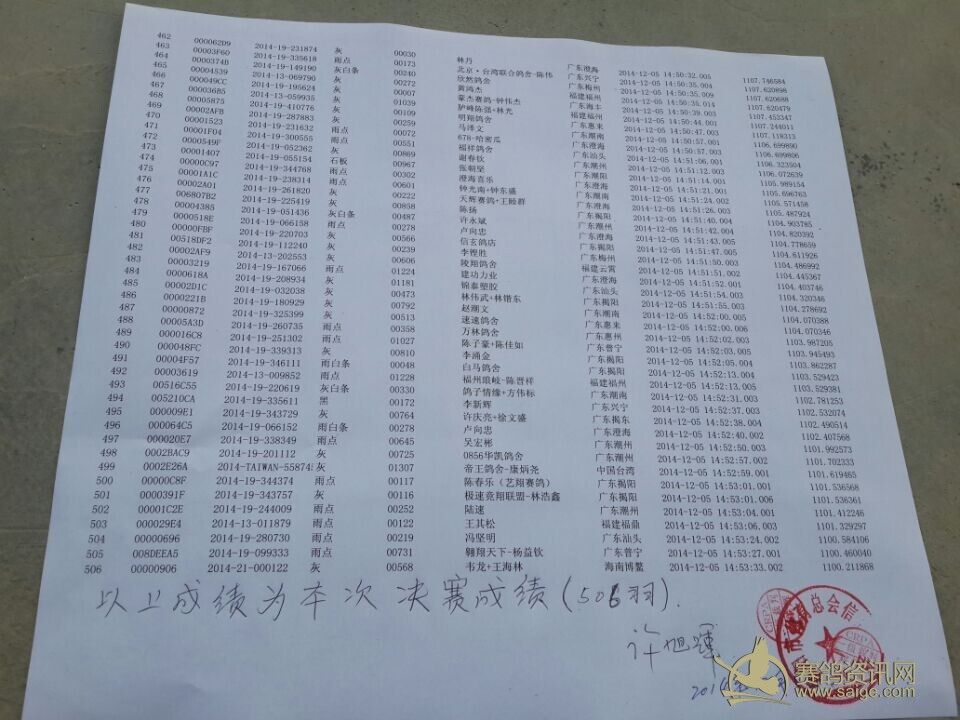 462 000062D9 2014-19-231874 灰 00030 林丹 广东澄海 2014-12-05 14:50:32.005 1107.746584
463 00003F60 2014-19-335618 雨点 00173 北京·台湾联合鸽舍-陈伟 广东兴宁 2014-12-05 14:50:35.004 1107.620898
464 0000374B 2014-19-149190 灰白条 00240 欣然鸽舍 广东梅州 2014-12-05 14:50:35.009 1107.620688
465 00004539 2014-19-195624 灰 00272 黄鸿杰 2014-12-05 14:50:35.014 1107.620479
466 000049CC 2014-13-069790 灰 00007 豪杰赛鸽-钟伟杰 2014-12-05 14:50:39.003 1107.453347
467 000036B5 2014-13-059935 灰 01039 胪峰陈强+林光 福建福州 2014-12-05 14:50:44.001 1107.244011
468 00005875 2014-19-410776 灰 00109 明翔鸽舍 广东惠来 2014-12-05 14:50:47.003 1107.118313
469 00002AFB 2014-19-287883 灰 00259 马泽文 2014-12-05 1106.699890
470 00001523 2014-19-231632 雨点 678-哈密瓜 2014-12-05 14:50:57.001 1106.699806
471 00001F04 2014-19-300555 雨点 00551 福祥鸽舍 广东汕头 2014-12-05 14:51:06.001 1106.323504
472 0000549F 2014-19-052362 灰 00869 谢春钦 2014-12-05 14:51:12.003 1106.072639
473 00001407 2014-19-055154 石板 00967 张朝坚 广东潮州 2014-12-05 14:51:14.003 1105.989154
474 00000C97 2014-19-344768 雨点 00355 澄海音乐 广东澄海 2014-12-05 14:51:21.001 1105.696763
475 00001A1C 2014-19-238314 雨点 00601 钟光南+钟东盛 广东潮南 2014-12-05 14:51:24.002 1105.571458
476 00002A01 2014-19-261820 灰 00222 天辉赛鸽+王晓群 广东澄海 2014-12-05 14:51:26.003 1105.487924
477 006807B2 2014-19-225419 灰 00858 陈扬 广东揭阳 2014-12-05 14:51:40.004 1104.903785
478 00004385 2014-19-051436 灰白条 00487 许永斌 广东潮州 2014-12-05
479 0000518E 2014-19-066158 雨点 00278 卢向忠 广东澄海 2014-12-05 1104.820392
480 00000FBF 2014-19-220703 灰 00566 信玄鸽店 2014-12-05 14:51:43.005 1104.778659
481 00518DF2 2014-19-112240 灰 00239 李铿胜 广东揭阳 2014-12-05 14:51:47.001 1104.611926
482 00002AF9 2014-13-202553 灰 00606 陵翔鸽舍 广东梅州 2014-12-05 14:51:50.001 1104.486992
483 00003219 2014-19-167066 雨点 01224 建功力业 福建云霄 2014-12-05 14:51:51.002 1104.445367
484 0000618A 2014-19-208934 灰 01181 锦泰塑胶 广东澄海 2014-12-05 14:51:52.002 1104.403746
485 00002D1C 2014-19-032038 灰 00473 林伟武+林锴东 广东汕头 2014-12-05 14:51:54.003 1104.320346
486 0000221B 2014-19-180929 灰 00792 赵潮文 广东揭阳 2014-12-05 14:51:55.004 1104.278692
487 00000872 2014-19-325399 灰 00513 速速鸽舍 广东潮南 2014-12-05 14:52:00.005 1104.070388
488 00005A3D 2014-19-260735 雨点 00358 万林鸽舍 广东惠来 2014-12-05 14:52:00.006 1104.070346
489 000016C8 2014-19-251302 雨点 01027 陈子豪+陈佳如 广东惠州 2014-12-05 14:52:02.005 1103.987205
490 000048FC 2014-19-339313 灰 00810 李涌金 广东普宁 2014-12-05 14:52:03.005 1103.945493
491 00004F57 2014-19-346111 雨白条 00048 白马鸽舍 广东揭阳 2014-12-05 14:52:05.004 1103.862287
492 00003619 2014-13-009852 雨点 01228 福州琅岐-陈晋祥 福建福州 2014-12-05 14:52:13.004 1103.529423
493 00516C55 2014-19-220619 灰白条 00330 鸽子情缘+方伟标 广东潮南 2014-12-05 14:52:13.005 1103.529381
494 005210CA 2014-19-335611 黑 00172 李新辉 广东兴宁 2014-12-05 14:52:31.003 1102.781253
495 000009E1 2014-19-343729 灰 00764 许庆亮+徐文盛 广东揭东 2014-12-05 14:52:37.003 1102.532074
496 000064C5 2014-19-066152 雨白条 00278 卢向忠 广东澄海 2014-12-05 14:52:38.002 1102.490514
497 000020E7 2014-19-338349 雨点 00645 吴宏彬 广东潮州 2014-12-05 14:52:40.002 1102.407568
498 0002BAC9 2014-19-201112 灰 00725 0856华凯鸽舍 广东潮州 2014-12-05 14:52:50.001 1101.992573
499 0002E26A 2014-TAIWAN-55874 灰 01307 帝王鸽舍-康炳尧 中国台湾 2014-12-05 14:52:57.002 1101.702333
500 00000C8F 2014-19-344374 雨点 00117 陈春乐（艺翔赛鸽） 广东揭阳 2014-12-05 14:52:59.001 1101.619461
501 0000391F 2014-19-343757 灰 00116 极速竞翔联盟-林浩鑫 广东揭阳 2014-12-05 14:53:01.006 1101.536568
502 00001C2E 2014-19-244009 雨点 00252 陆速 广东潮州 2014-12-05 14:53:04.001 1101.412246
503 000029E4 2014-13-011879 雨点 00122 王其松 福建福鼎 2014-12-05 14:53:06.003 1101.329297
504 00000696 2014-19-280730 雨点 00219 冯坚明 广东汕头 2014-12-05 14:53:24.003 1100.584106
505 008DEEA5 2014-19-099333 雨点 00731 翱翔天下-杨益钦 广东普宁 2014-12-05 14:53:27.001 1100.460040
506 00000906 2014-21-000122 灰 00568 韦龙+王海林 海南博鳌 2014-12-05 14:53:33.002 1100.211868
以上成绩为本次决赛成绩(506羽).
许旭
总会信
赛鸽资讯网
www.saige.com